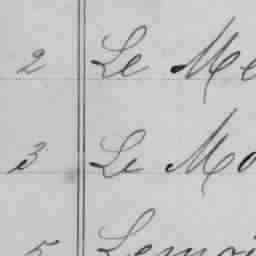 2 Le Me
3 Le Mo
5 Lemoi